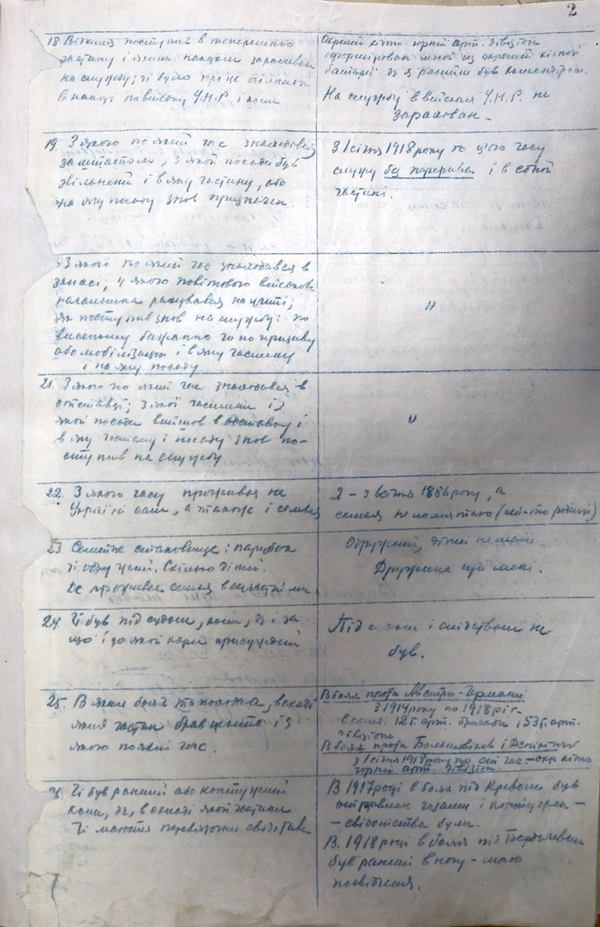 2
18 Відкіля поступив в теперешню
частину і яким порядком зарахован
на службу; чи було про це оголошено
в наказі по війську У.Н.Р і коли
Окремий кінно-гірний арт. дівізіон
сформірован мной із окремої кінной
батареї де я раніш був командіром.
На службу в війская У.Н.Р. не
зарахован.-
19. З якого по який час знаходився
за штатом, з якой посади був
звільнений і в яку частину, або
на яку посаду знов призначен
З 1 січня 1918 року по цього часу
служу без перерива і в одной
частині.
З якого по який час знаходився в
запасі, у якого повітового військов.
начальника рахувався на учоті;
як поступив знов на службу: по
власному бажанню чи по призиву
або мобілізації і в яку частину
і на яку посаду
"
21. З якого по який час знаходився в
отставці; з якої частини і з
якой посади вийшов в отставку і
в яку частину і посаду знов по-
ступив на службу
"
22. З якого часу проживає на
Україні сам, а також і семья
Я - з квітня 1886 року, а
семья не памятаю
23 Семейне становище: парубок
чи одружений, скілько дітей.
Де проживає семья в сучасний мент
Одружений, дітей не маю
Дружина при мені.
24. Чі був під судом, коли, де і за
що і до якой кари присужений
Під судом і слідством не
був.
25. В яких боях та походах, в складі
яких частин брав участь і з
якого по який час.
В боях проти Австро-Германії
з 1914 року по 1918 рік
в складі 12 арт. бригади і 53 арт.
дівізіона
В боях проти Большевіков і Денікінцев
з 1 січня 1918 року по сей час - окр кінно
гірний арт. дівізіон.
26. Чі був раненій або контужений
коли, де, в складі якой частини
Чі маються перевязочни свідоцтва
В 1917 році в боях під Крево був
отруєний газами і контужен -
- свідоцтва були.
В 1918 році в боях під Бердичевом
був раненій в ногу - маю
посвідчення.